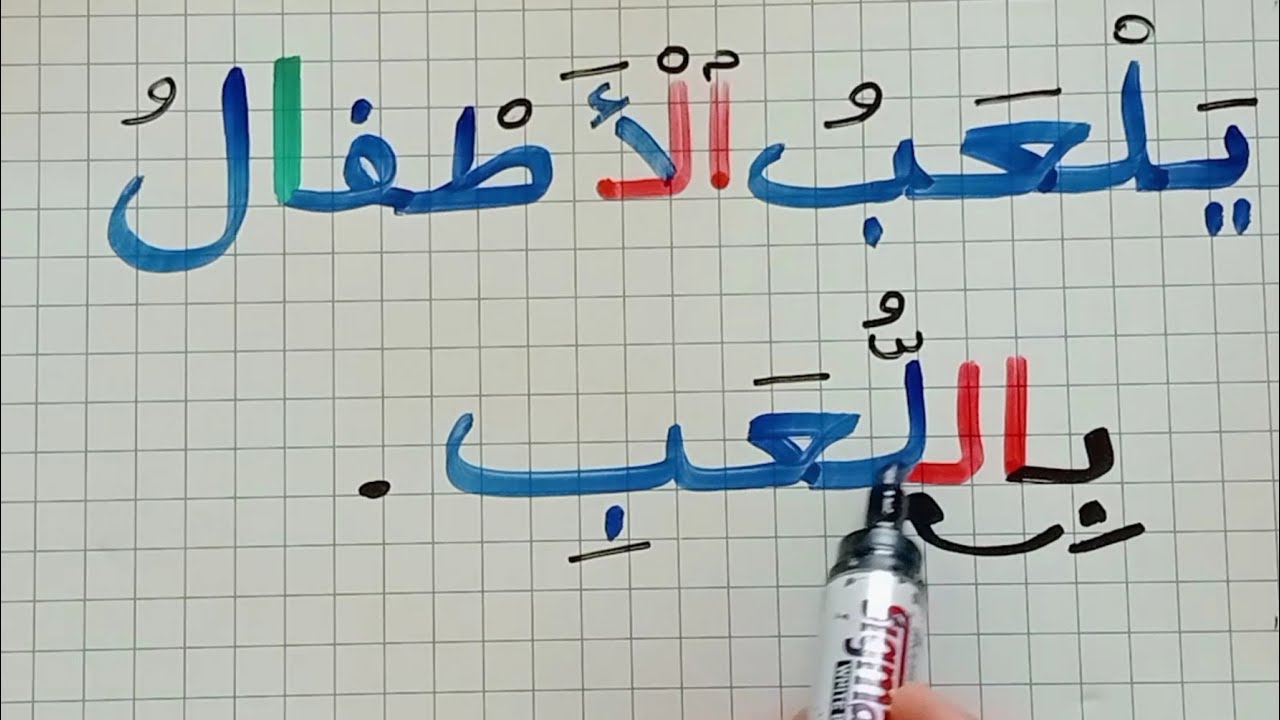 يَلْعَبُ ٱلْأَطْفالُ
بِاللُّعَبِ .